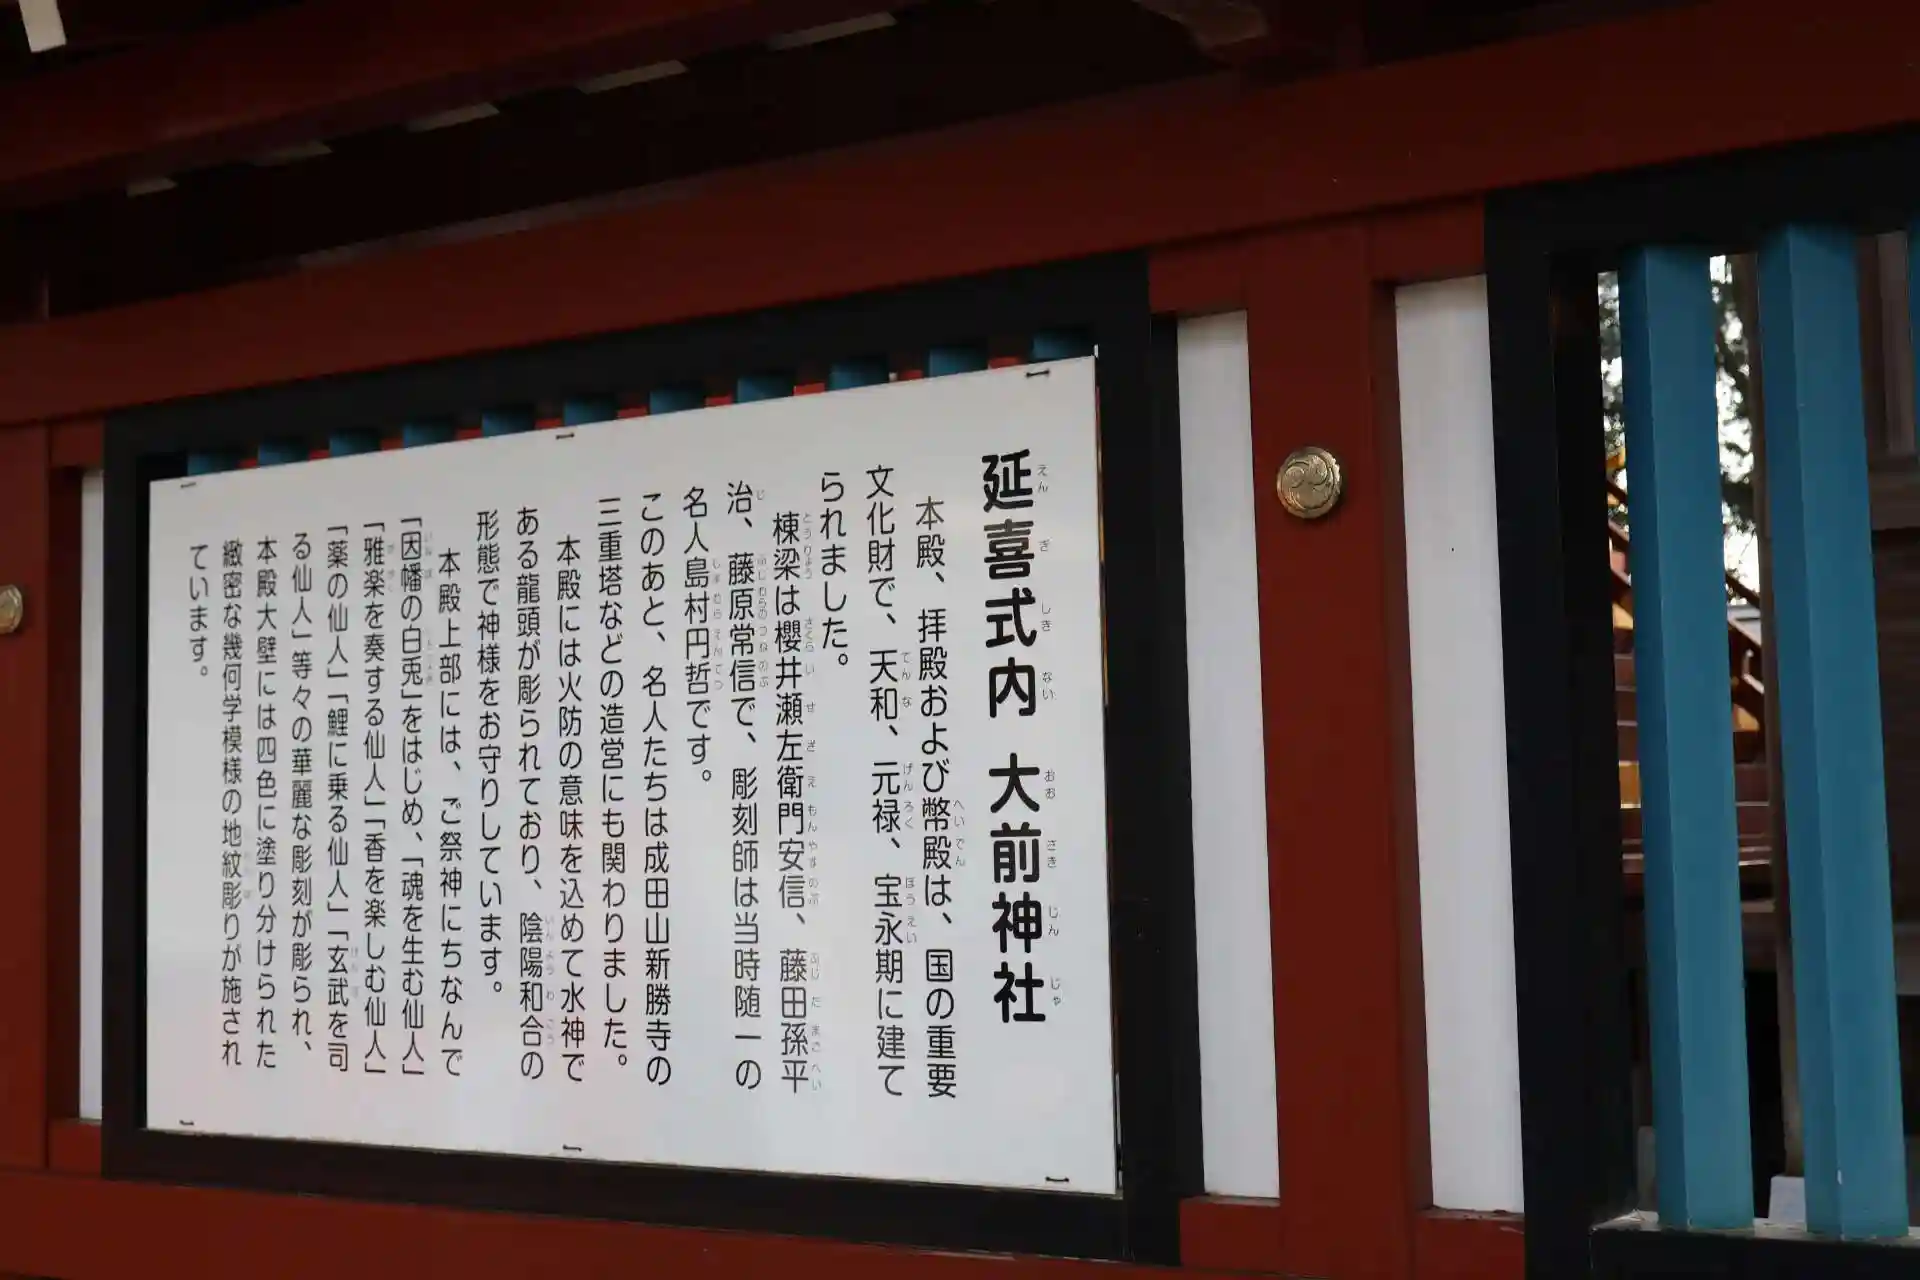 延喜式内 大前神社
本殿、拝殿および幣殿は、国の重要
文化財で、天和、元禄、宝永期に建て
られました。
棟梁は櫻井瀬左衛門安信、藤田孫平
治、藤原常信で、彫刻師は当時随一の
名人島村円哲です。
このあと、名人たちは成田山新勝寺の
三重塔などの造営にも関わりました。
本殿には火防の意味を込めて水神で
ある龍頭が彫られており、陰陽和合の
形態で神様をお守りしています。
本殿上部には、ご祭神にちなんで
「因幡の白兎」をはじめ、「魂を生む仙人」
「雅楽を奏する仙人」「香を楽しむ仙人」
「薬の仙人」「鯉に乗る仙人」「玄武を司
る仙人」等々の華麗な彫刻が彫られ、
本殿大壁には四色に塗り分けられた
緻密な幾何学模様の地紋彫りが施され
ています。